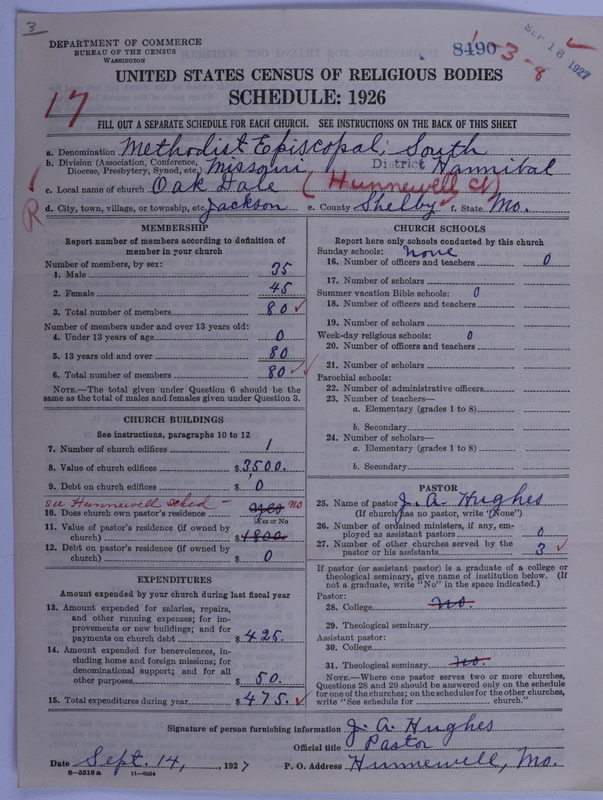 3
DEPARTMENT OF COMMERCE
BUREAU OF THE CENSUS
WASHINGTON
8490 -3-8
SEP 16 1927
UNITED STATES CENSUS OF RELIGIOUS BODIES
SCHEDULE: 1926
17
FILL OUT A SEPARATE SCHEDULE FOR EACH CHURCH. SEE INSTRUCTIONS ON THE BACK OF THIS SHEET
a. Denomination Methodist Episcopal, South
b. Division (Association, Conference, Diocese, Presbytery, Synod, etc.) Missouri District Hannibal
c. Local name of church Oak Dale (Hunnewell Ct)
R
d. City, town, village, or township, etc. Jackson e. County Shelby f. State Mo.
MEMBERSHIP
Report number of members according to definition of
member in your church
Number of members, by sex:
1. Male 35
2. Female 45
3. Total number of members 80
Number of members under and over 13 years old:
4. Under 13 years of age 0
5. 13 years old and over 80
6. Total number of members 80
NOTE.—The total given under Question 6 should be the
same as the total of males and females given under Question 3.
CHURCH BUILDINGS
See instructions, paragraphs 10 to 12
7. Number of church edifices 1
8. Value of church edifices $3500.
9. Debt on church edifices $ 0
see Hunnewell sched -
10. Does church own pastor's residence yes no
Yes or No
11. Value of pastor's residence (if owned by
church) $1800.
12. Debt on pastor's residence (if owned by
church) $ 0
EXPENDITURES
Amount expended by your church during last fiscal year
13. Amount expended for salaries, repairs,
and other running expenses; for im-
provements or new buildings; and for
payments on church debt $ 425.
14. Amount expended for benevolences, in-
cluding home and foreign missions; for
denominational support; and for all
other purposes $ 50.
15. Total expenditures during year $ 475.
CHURCH SCHOOLS
Report here only schools conducted by this church
Sunday schools: none
16. Number of officers and teachers 0
17. Number of scholars
Summer vacation Bible schools: 0
18. Number of officers and teachers
19. Number of scholars
Week-day religious schools: 0
20. Number of officers and teachers
21. Number of scholars
Parochial schools:
22. Number of administrative officers
23. Number of teachers—
a. Elementary (grades 1 to 8)
b. Secondary
24. Number of scholars—
a. Elementary (grades 1 to 8)
b. Secondary
PASTOR
25. Name of pastor J. A. Hughes
(If church has no pastor, write "None")
26. Number of ordained ministers, if any, em-
ployed as assistant pastors 0
27. Number of other churches served by the
pastor or his assistants 3
If pastor (or assistant pastor) is a graduate of a college or
theological seminary, give name of institution below. (If
not a graduate, write "No" in the space indicated.)
Pastor:
28. College no.
29. Theological seminary
Assistant pastor:
30. College
31. Theological seminary no.
NOTE.—Where one pastor serves two or more churches,
Questions 28 and 29 should be answered only on the schedule
for one of the churches; on the schedules for the other churches,
write "See schedule for church."
Signature of person furnishing information J. A. Hughes
Official title Pastor
Date Sept. 14, 1927 P. O. Address Hunnewell, Mo.
8—5518 a 11—9054